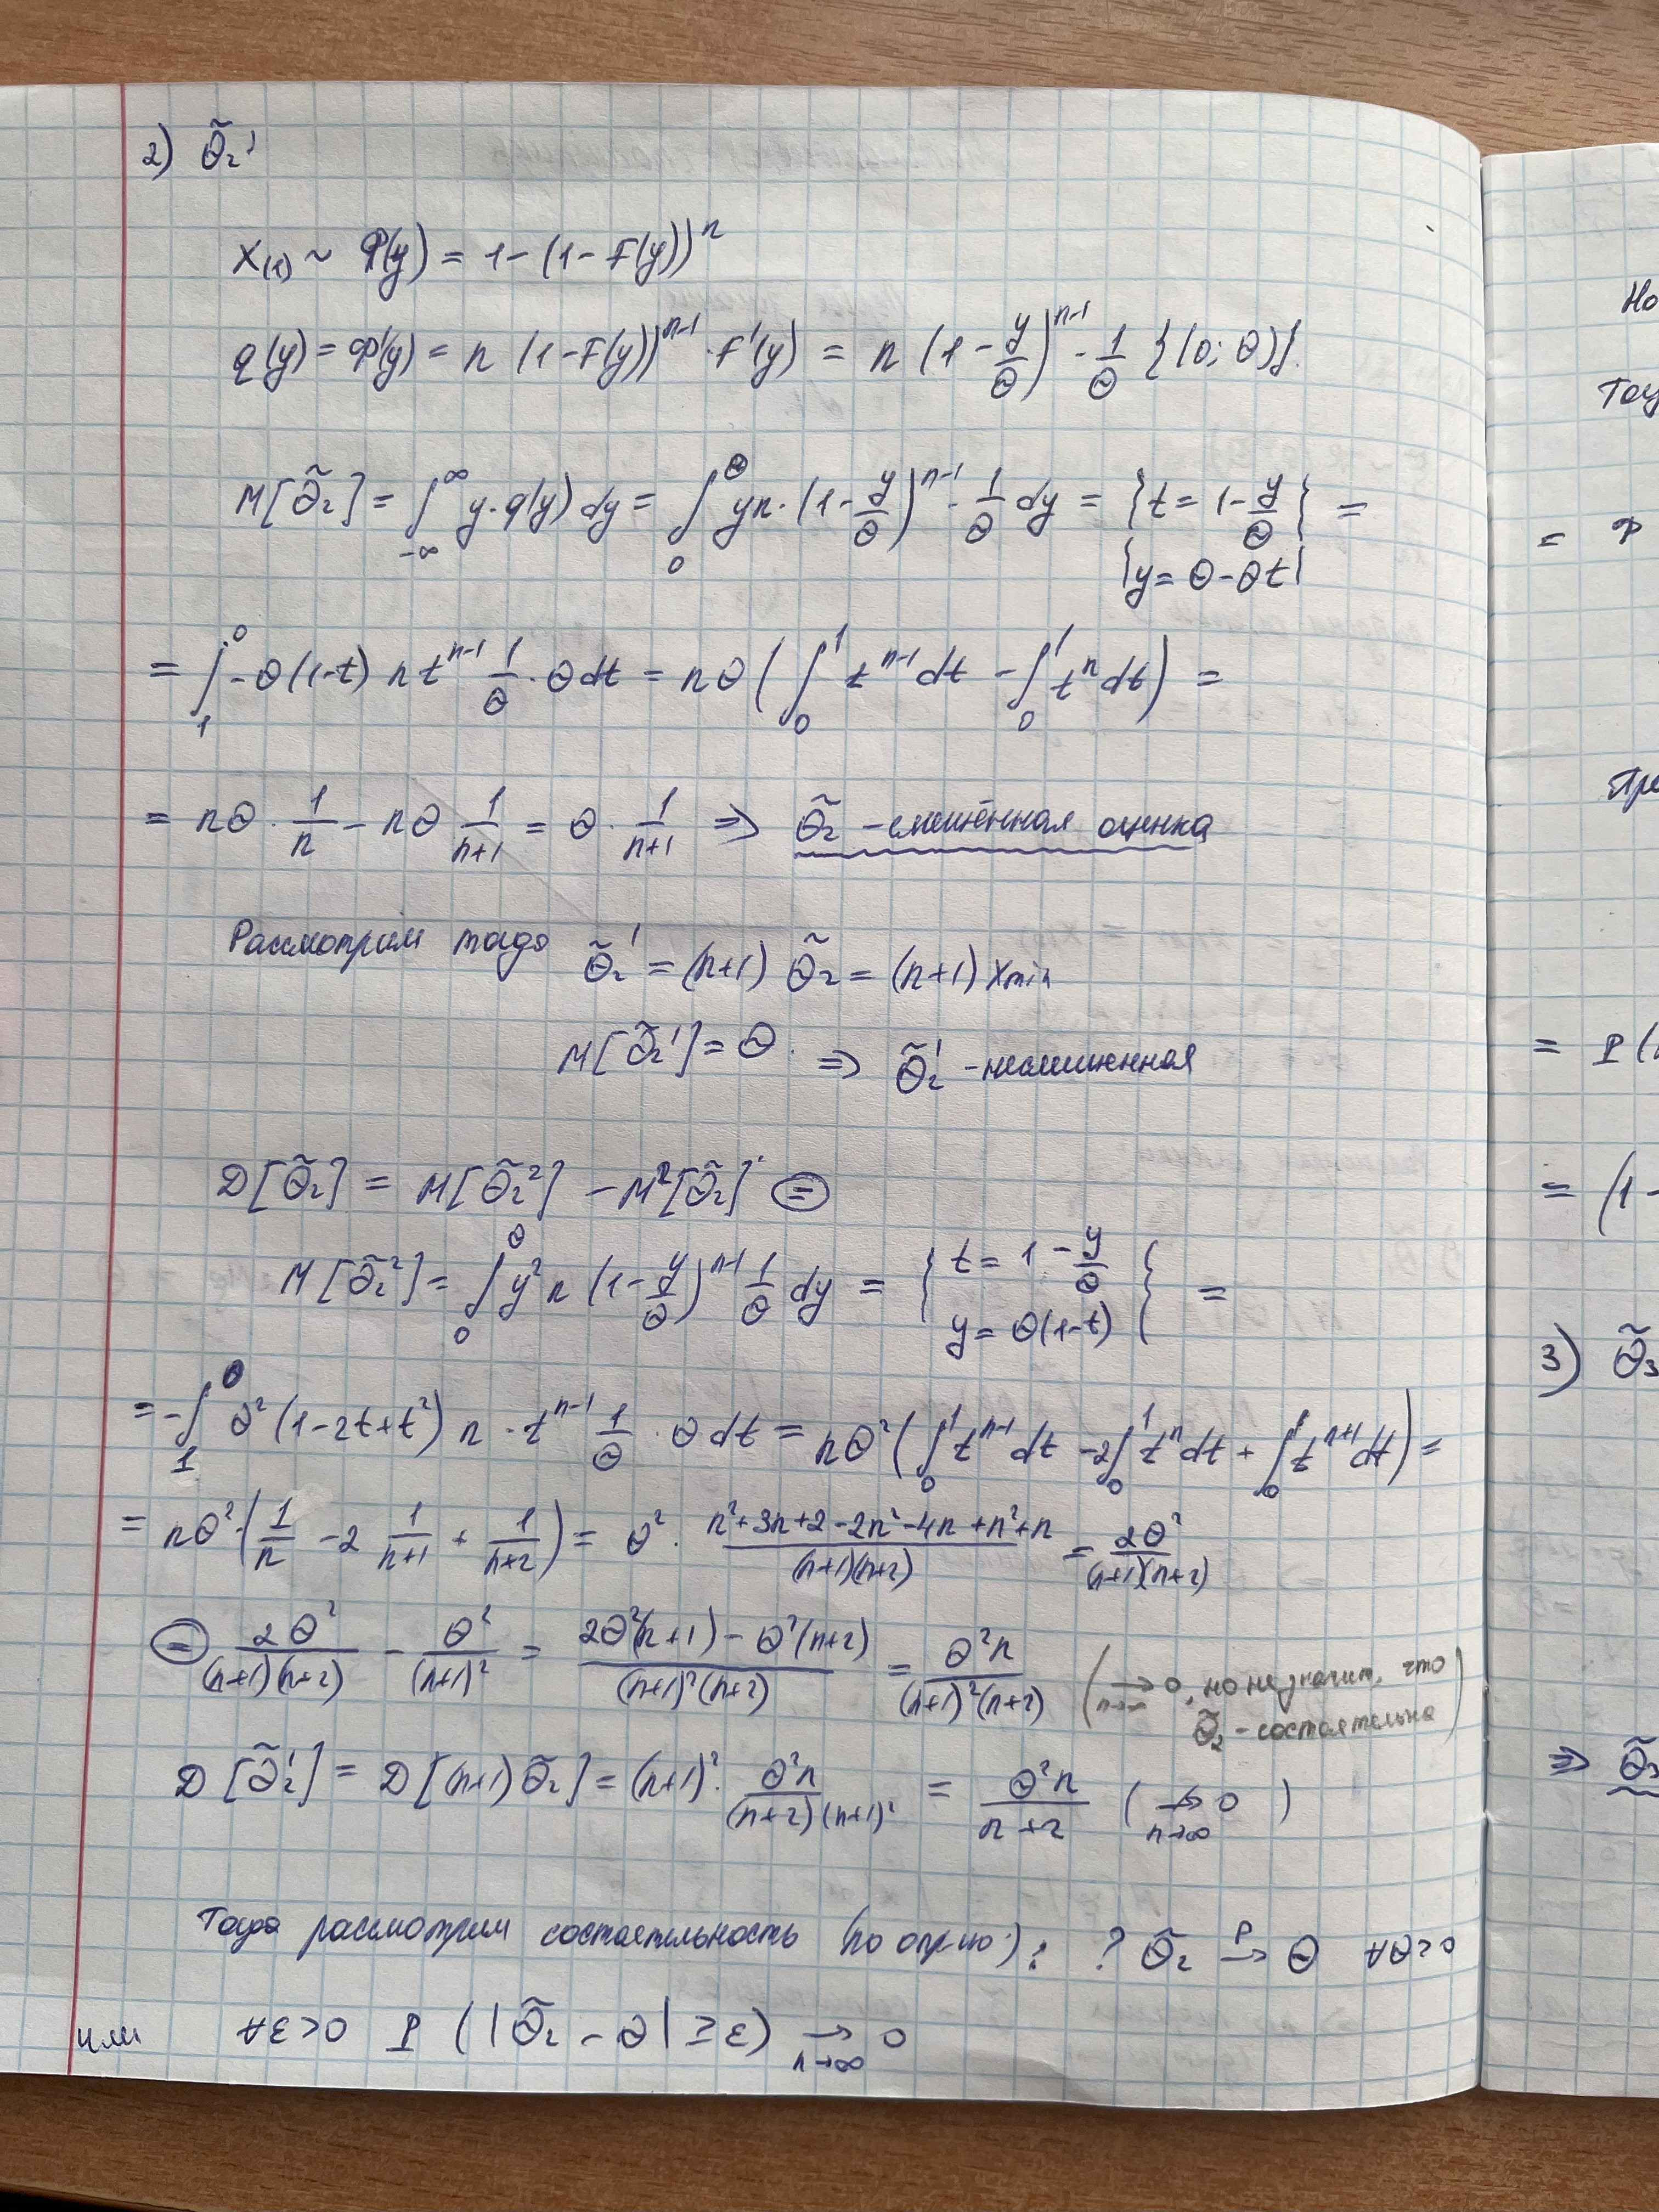 2) θ̃₂'
X₍₁₎ ~ Φ(y) = 1-(1-F(y))ⁿ
q(y) = Φ'(y) = n (1-F(y))ⁿ⁻¹ · F'(y) = n (1 - y/θ)ⁿ⁻¹ · 1/θ {(0; θ)}.
M[θ̃₂] = ∫_{-∞}^{∞} y·q(y) dy = ∫_0^θ yn·(1 - y/θ)ⁿ⁻¹ · 1/θ dy = {t = 1 - y/θ} =
{y = θ - θt}
= ∫_1^0 -θ(1-t) n tⁿ⁻¹ 1/θ · θ dt = nθ (∫_0^1 tⁿ⁻¹ dt - ∫_0^1 tⁿ dt) =
= nθ · 1/n - nθ 1/(n+1) = θ · 1/(n+1) ⇒ θ̃₂ - смещённая оценка
Рассмотрим тогда θ̃₂' = (n+1) θ̃₂ = (n+1) Xmin
M[θ̃₂'] = θ. ⇒ θ̃₂' - несмещенная
D[θ̃₂] = M[θ̃₂²] - M²[θ̃₂] ⊜
M[θ̃₂²] = ∫_0^θ y² n (1 - y/θ)ⁿ⁻¹ 1/θ dy = { t = 1 - y/θ } =
{ y = θ(1-t) }
= -∫_1^0 θ² (1-2t+t²) n · tⁿ⁻¹ 1/θ · θ dt = nθ² (∫_0^1 tⁿ⁻¹ dt - 2∫_0^1 tⁿ dt + ∫_0^1 tⁿ⁺¹ dt) =
= nθ² · (1/n - 2 1/(n+1) + 1/(n+2)) = θ² · (n²+3n+2-2n²-4n+n²+n)/((n+1)(n+2)) = 2θ²/((n+1)(n+2))
⊜ 2θ²/((n+1)(n+2)) - θ²/(n+1)² = (2θ²(n+1) - θ²(n+2))/((n+1)²(n+2)) = θ²n/((n+1)²(n+2)) (→_{n→∞} 0, но не значит, что
θ̃₂ - состоятельна)
D[θ̃₂'] = D[(n+1) θ̃₂] = (n+1)² · θ²n/((n+2)(n+1)²) = θ²n/(n+2) (↛_{n→∞} 0)
Тогда рассмотрим состоятельность (по опр-ю): ? θ̃₂ →ᴾ θ ∀θ>0
или ∀ε>0 P (|θ̃₂ - θ| ≥ ε) →_{n→∞} 0
Но
= Φ
= P(
= (1-
3) θ̃₃
⇒ θ̃₃